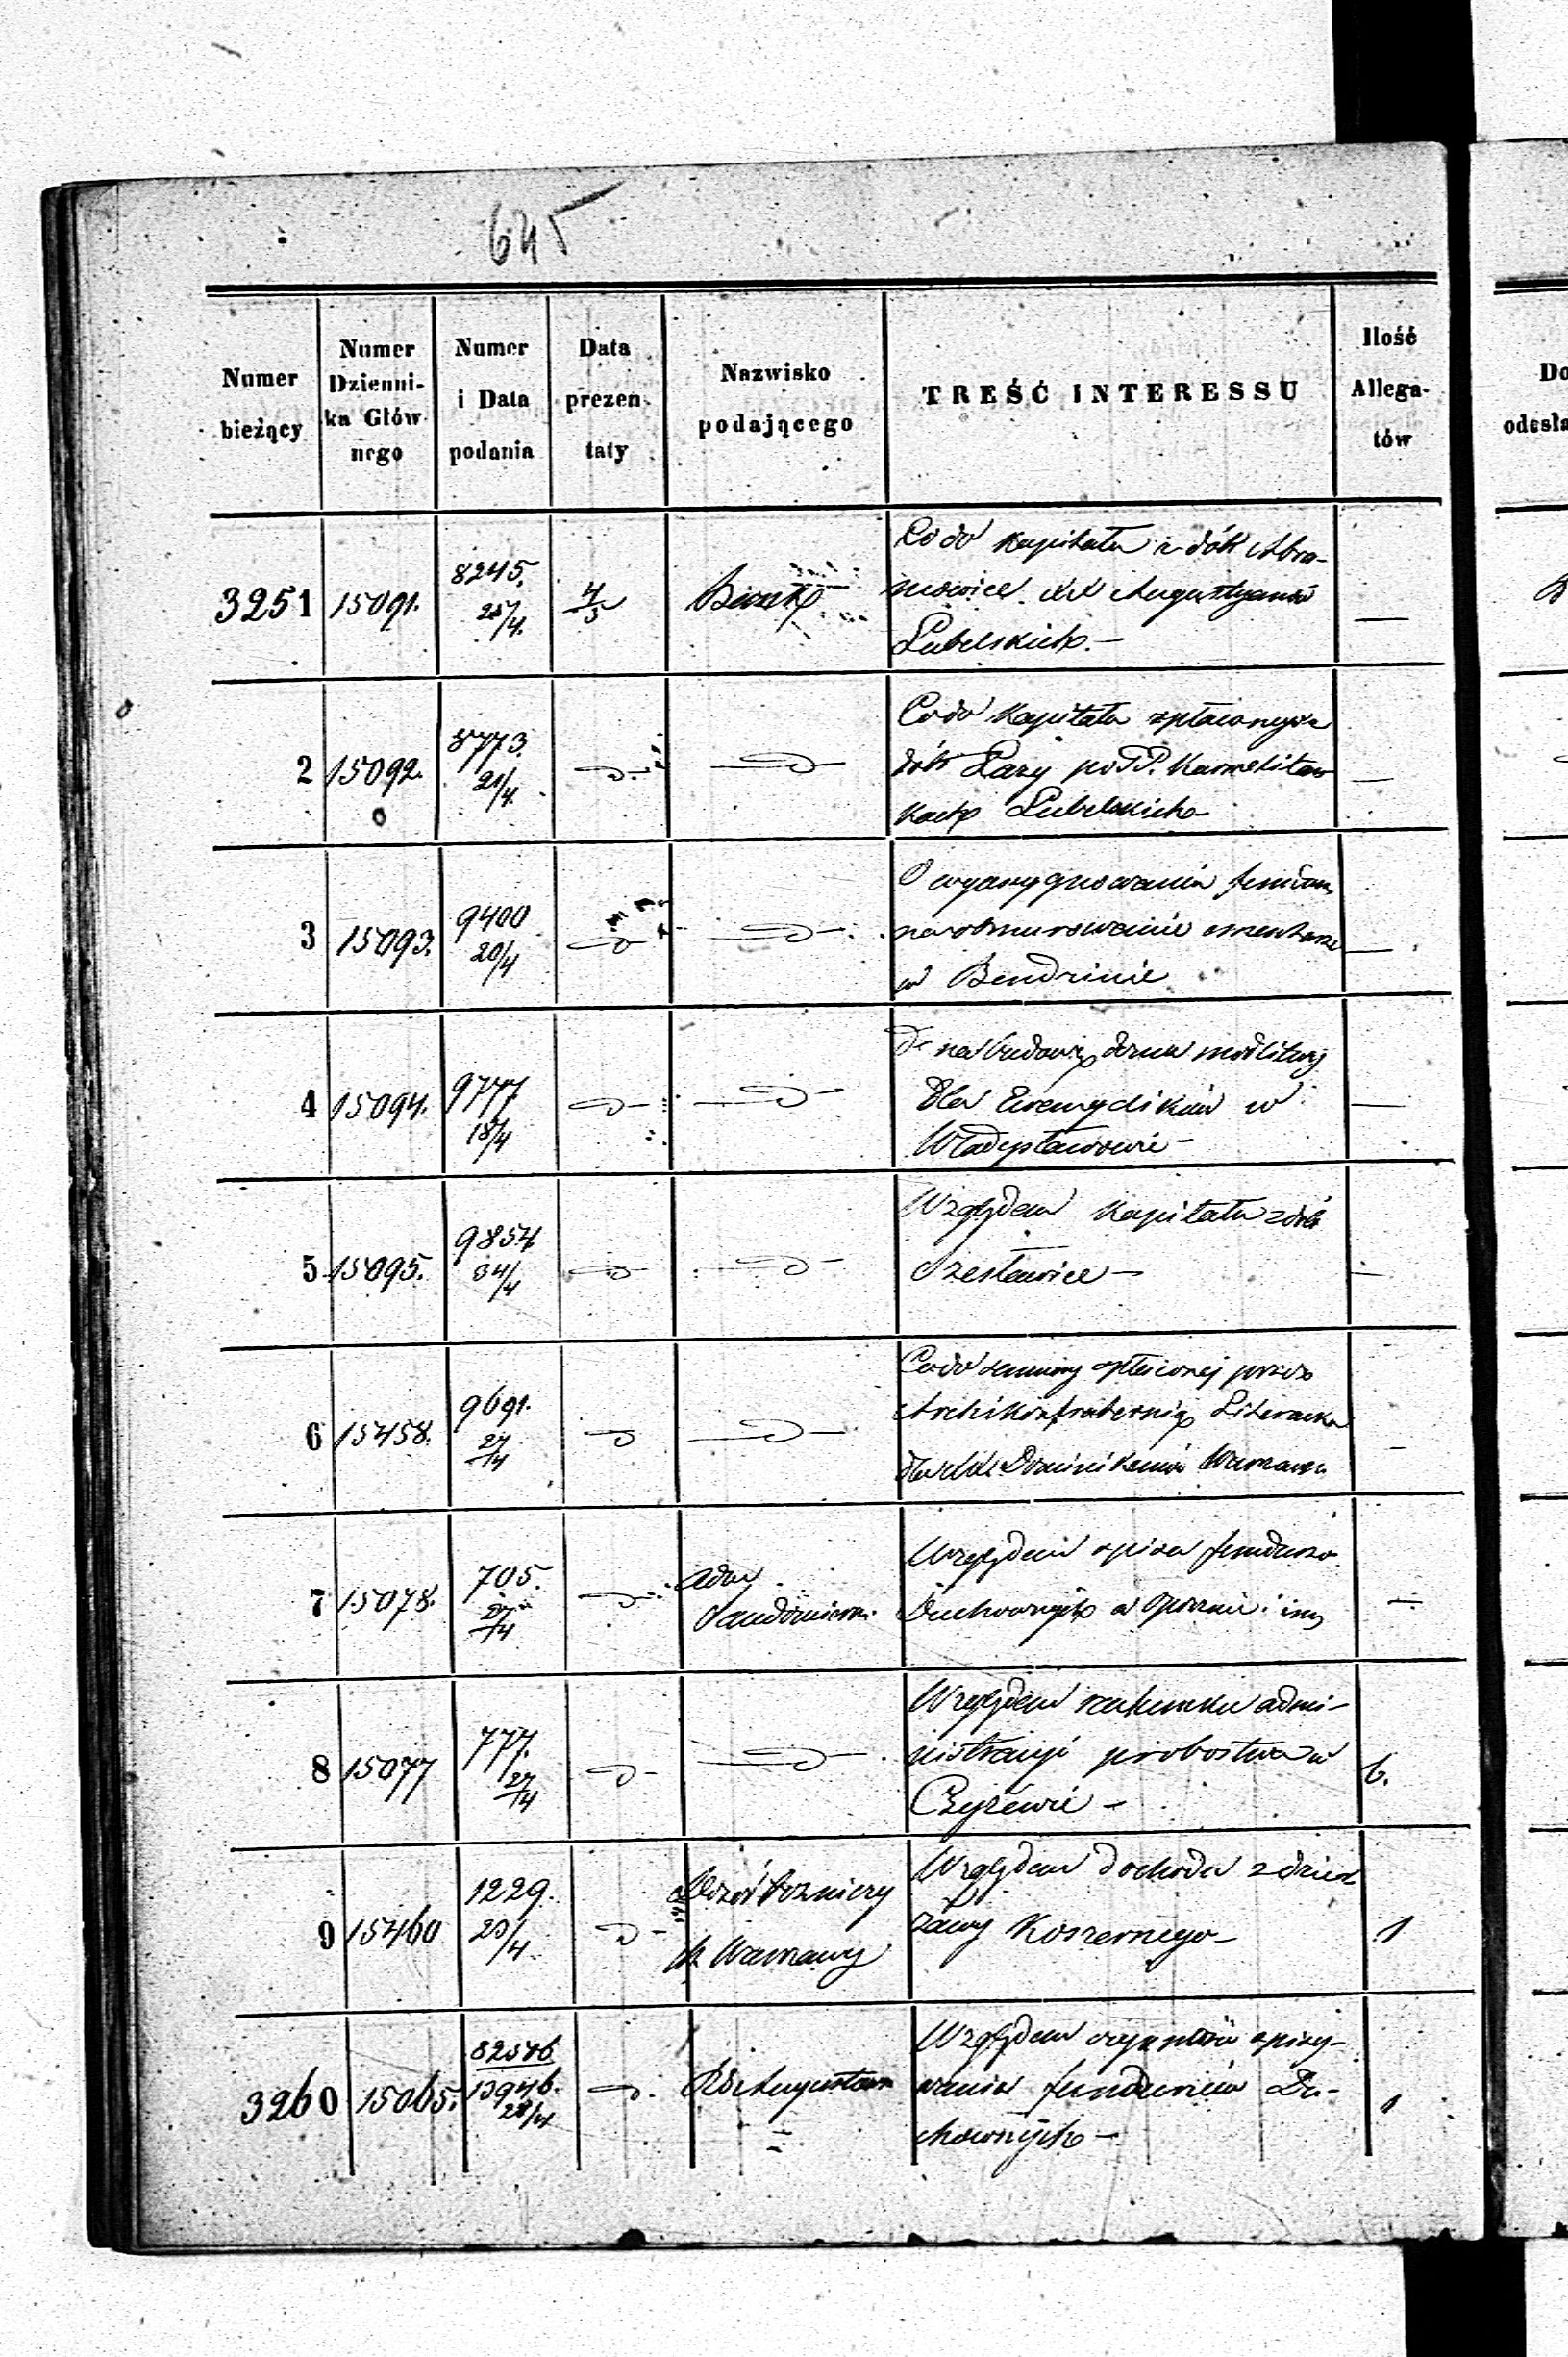 645
Numer bieżący
Numer Dzienni-
ka Głów-
nego
Numer
i Data
podania
Data
prezen-
taty
Nazwisko
podającego
TREŚĆ INTERESSU
Ilość
Allega-
tów
Do
odesła
3251 15091. 8245. 25/4. 4/5
Co do Kapitału z dóbr Abra-
mowice XX Augustyanów
Lubelskich. —
2 15092. 8773. 21/4
Co do Kapitału spłaconego z
dóbr Łazy po PP. Karmelitan
kach Lubelskich
3 15093. 9400 20/4
O wyasygnowanie fundus
na obmurowanie cmentarza
w Bendzinie
4 15094. 9777 18/4
Dº na budowę domu modlitwy
dla Ewangelików w
Władysławowie —
5 15095. 9854 /4
Względem Kapitału z dóbr
—
6 15458. 9691. 27/4
Co do summy spłaconej przez
Archikonfraternią Literacką
dla XX. Dominikanów Warszaws.
7 15078. 705. 27/4
Adm
Sandomiers.
Względem spisu funduszo
Duchownych w Opocznie i inn
8 15077 777. 27/4
Względem rachunku admi-
nistracyi probostwa w
Czyżewie — 6.
9 15460 1229. 20/4
Dozór Bożniczy
M. Warszawy
Względem dochodu z dzier
żawy Koszernego — 1
3260 15065. 13946. 28/4
Rz Augustow
Względem
wania funduszów Du-
chownych — 1